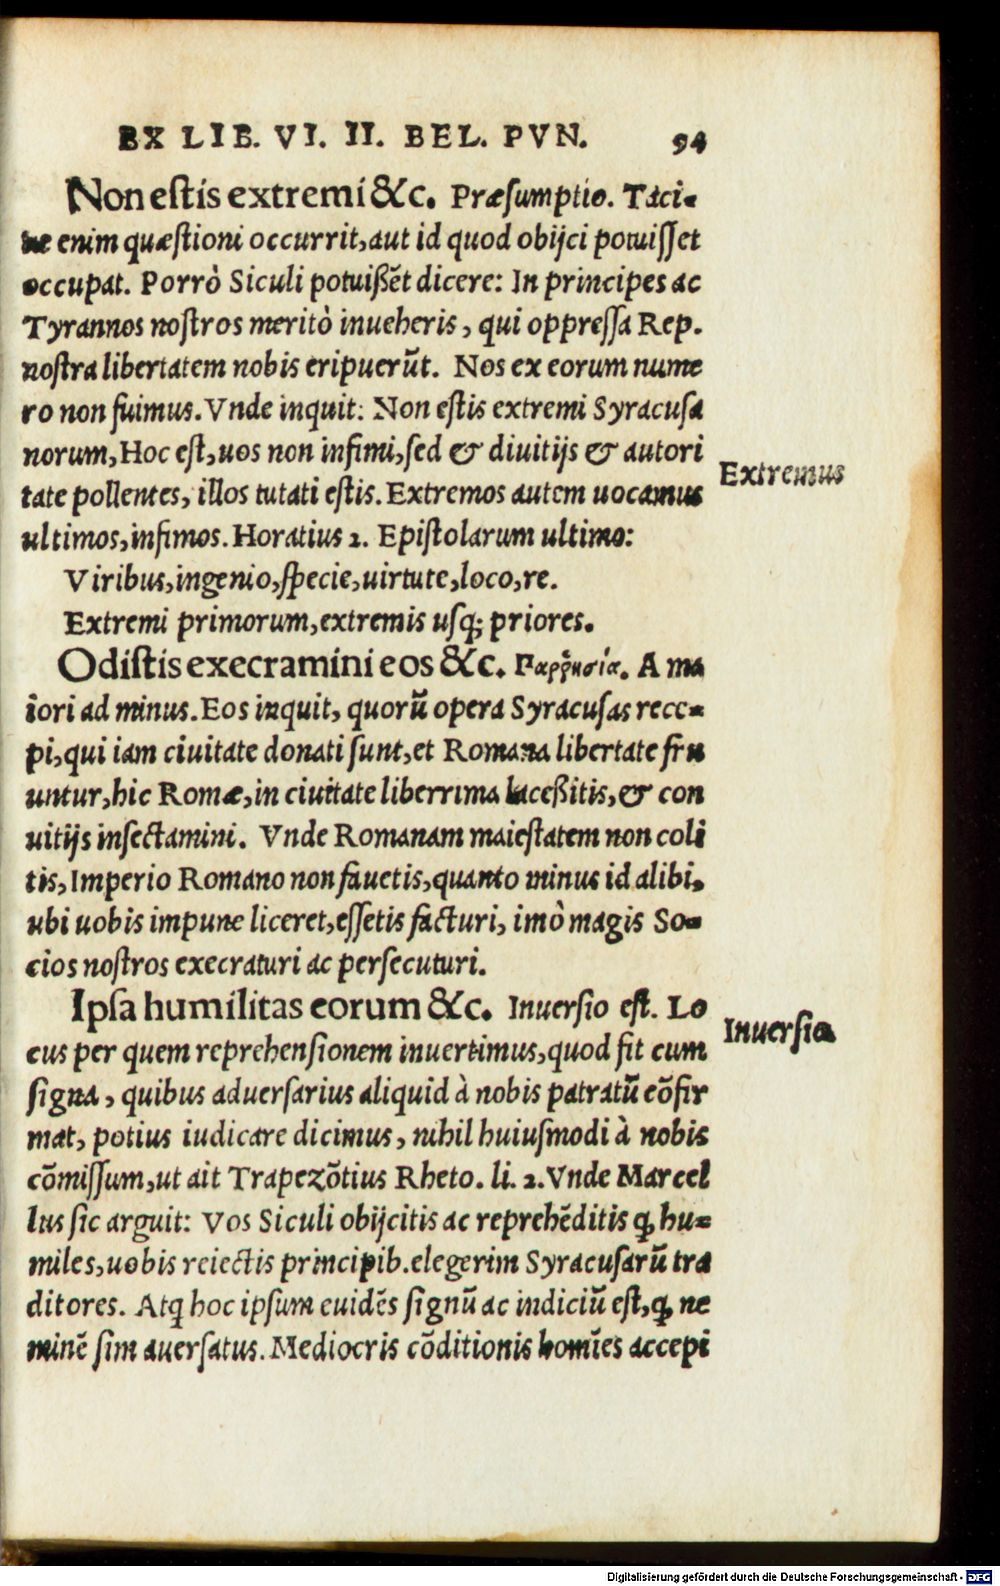 EX LIB. VI. II. BEL. PVN. 94
Non estis extremi &c. Præsumptio. Taci-
ne enim quæstioni occurrit, aut id quod obijci potuisset
occupat. Porrò Siculi potuissẽt dicere: In principes ac
Tyrannos nostros meritò inueheris, qui oppressa Rep.
nostra libertatem nobis eripuerũt. Nos ex eorum nume
ro non fuimus. Vnde inquit: Non estis extremi Syracusa
norum, Hoc est, uos non infimi, sed & diuitijs & autori
tate pollentes, illos tutati estis. Extremos autem uocamus
Extremus
ultimos, infimos. Horatius 2. Epistolarum ultimo:
Viribus, ingenio, specie, uirtute, loco, re.
Extremi primorum, extremis usq; priores.
Odistis execramini eos &c. Παῤῥησία. A ma
iori ad minus. Eos inquit, quorũ opera Syracusas rece-
pi, qui iam ciuitate donati sunt, et Romana libertate fru
untur, hic Romæ, in ciuitate liberrima lacessitis, & con
uitijs insectamini. Vnde Romanam maiestatem non coli
tis, Imperio Romano non fauetis, quanto minus id alibi,
ubi uobis impune liceret, essetis facturi, imò magis So-
cios nostros execraturi ac persecuturi.
Ipsa humilitas eorum &c. Inuersio est. Lo
Inuersio
cus per quem reprehensionem inuertimus, quod fit cum
signa, quibus aduersarius aliquid à nobis patratũ cõfir
mat, potius iudicare dicimus, nihil huiusmodi à nobis
cõmissum, ut ait Trapezõtius Rheto. li. 2. Vnde Marcel
lus sic arguit: Vos Siculi obijcitis ac reprehẽditis ꝙ hu-
miles, uobis reiectis principib. elegerim Syracusarũ tra
ditores. Atq; hoc ipsum euidẽs signũ ac indiciũ est, ꝙ ne
minẽ sim auersatus. Mediocris cõditionis homĩes accepi
Digitalisierung gefördert durch die Deutsche Forschungsgemeinschaft - DFG